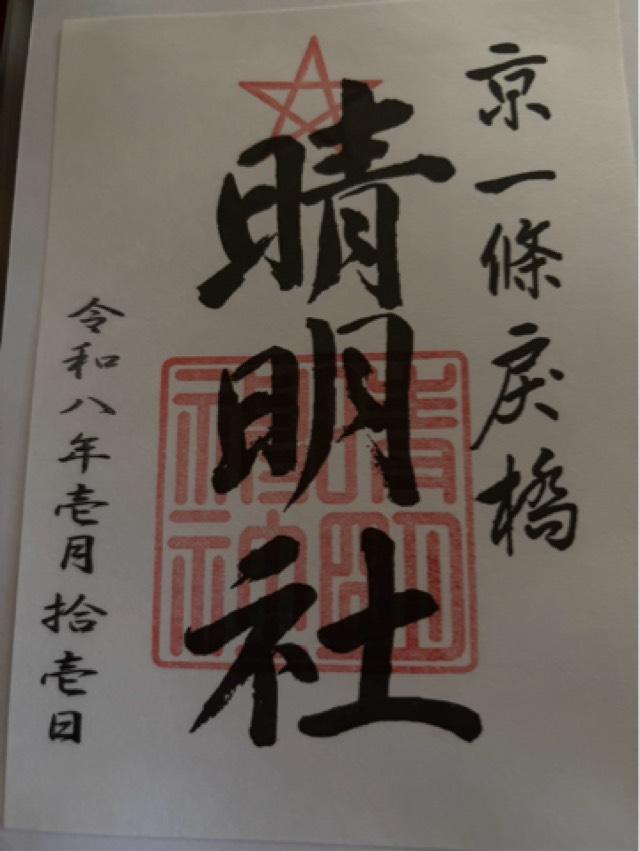 京一條戻橋
晴明社
晴明
神社
令和八年壱月拾壱日